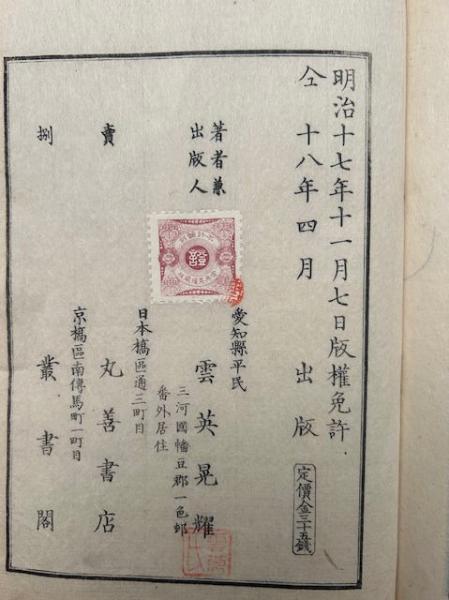 明治十七年十一月七日版權免許
仝 十八年四月 出版
定價金三十五錢
著者兼
出版人
愛知縣平民
雲英晃耀
三河國幡豆郡一色邨
番外居住
日本橋區通三町目
賣 丸善書店
京橋區南傳馬町一町目
捌 叢書閣
證